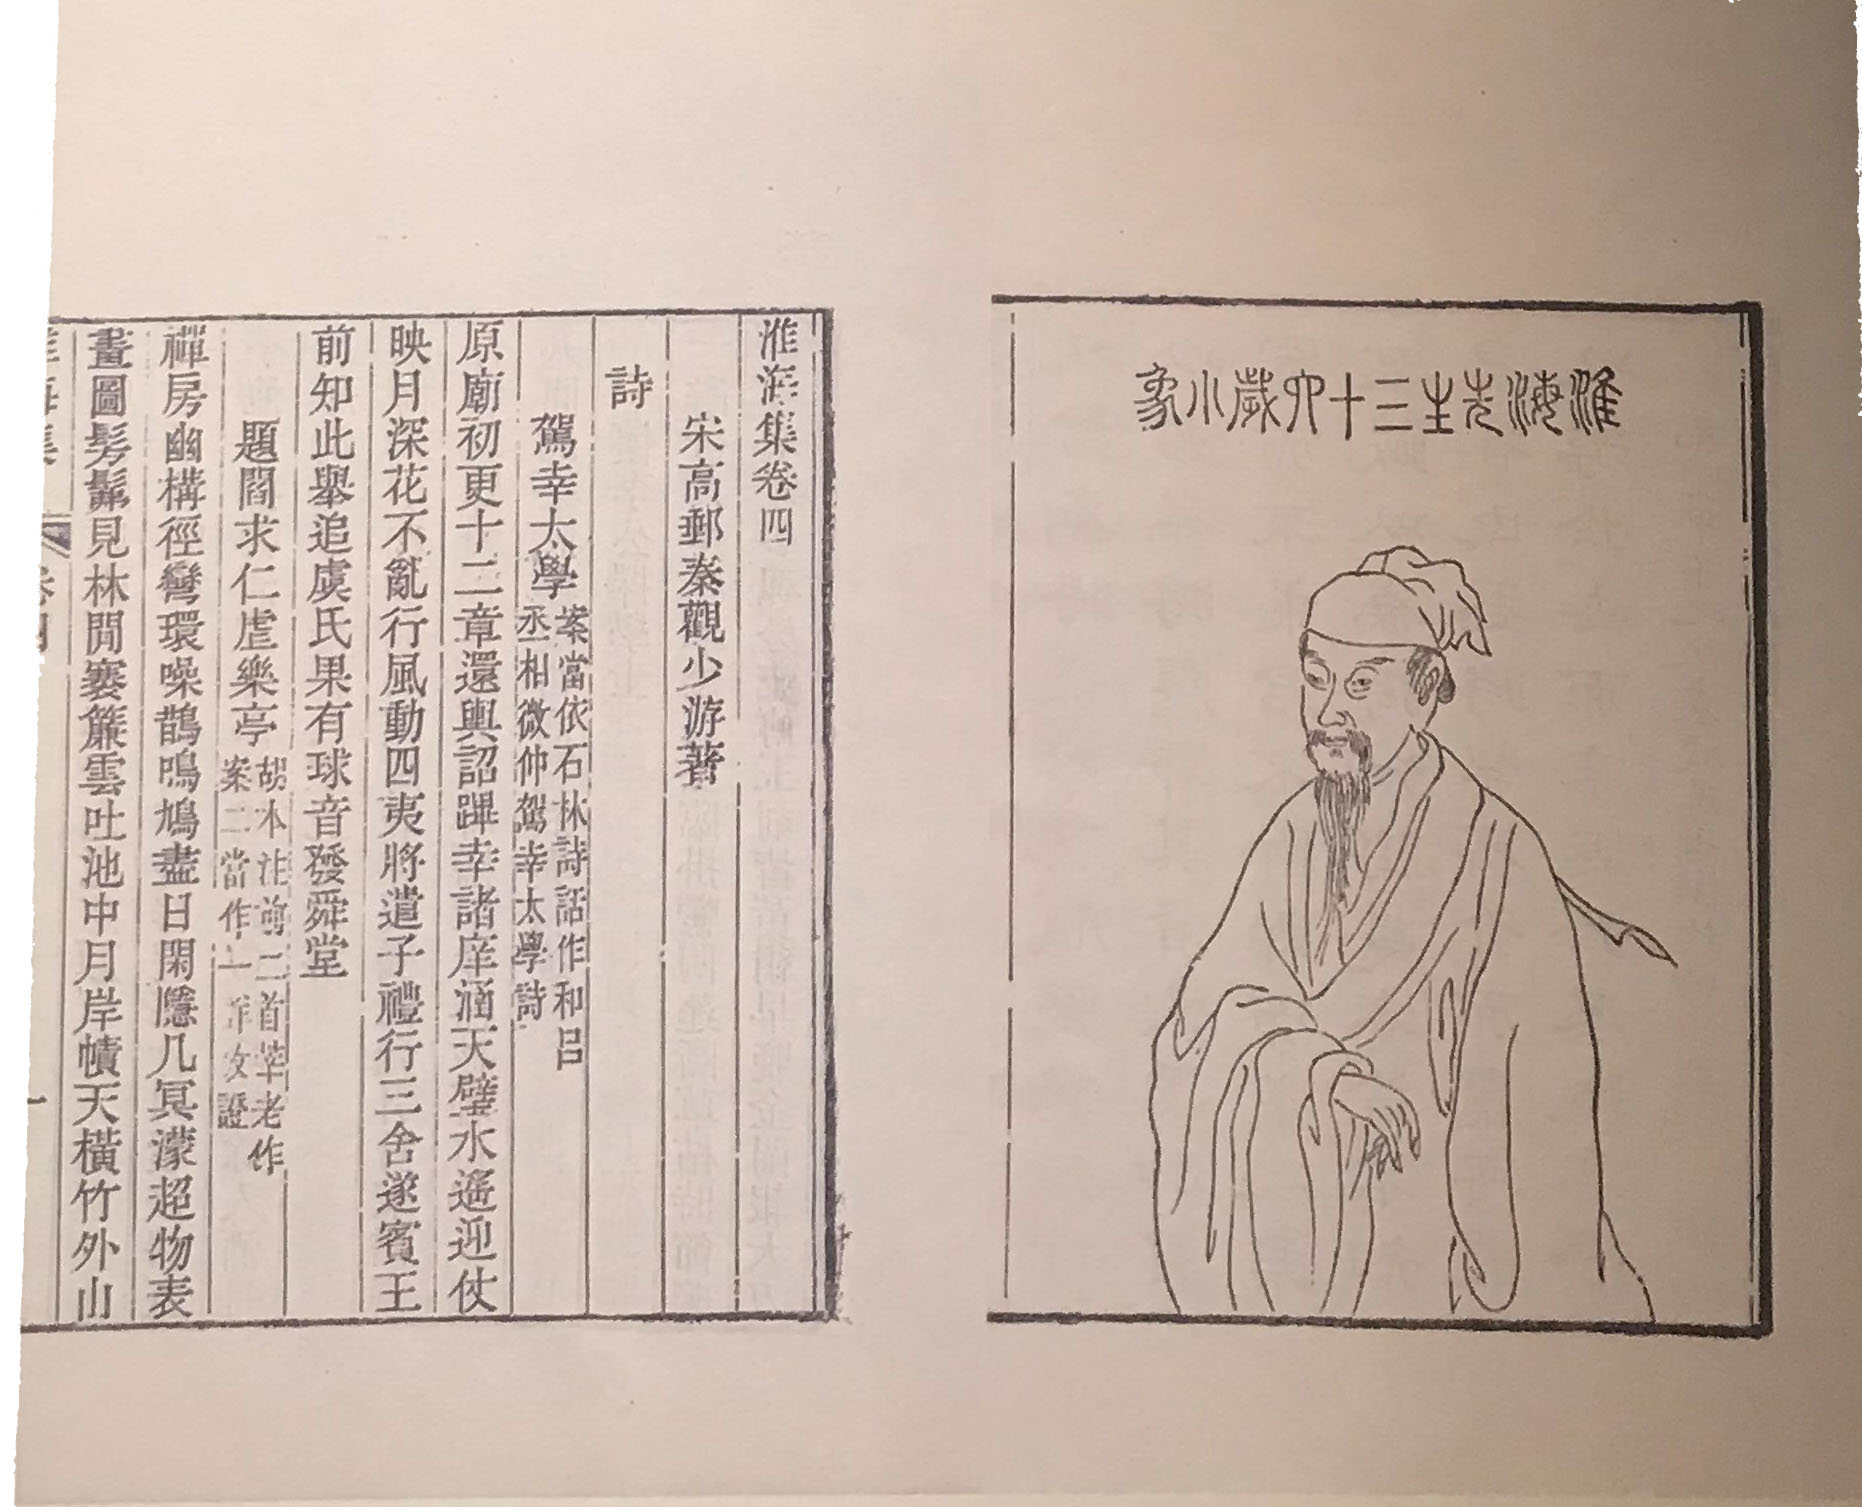 淮海先生三十六歲小象
淮海集卷四
宋高郵秦觀少游著
詩
駕幸太學案當依石林詩話作和呂
丞相微仲駕幸太學詩
原廟初更十二章還輿詔蹕幸諸庠涵天璧水遙迎仗
映月深花不亂行風動四夷將遣子禮行三舍遂賓王
前知此舉追虞氏果有球音發舜堂
題閻求仁虛樂亭胡本注前二首莘老作
案二當作一詳攷證
禪房幽構徑彎環噪鵲鳴鳩盡日閑隱几冥濛超物表
畫圖髣髴見林閒褰簾雲吐池中月岸幘天橫竹外山
淮海集 卷四 一